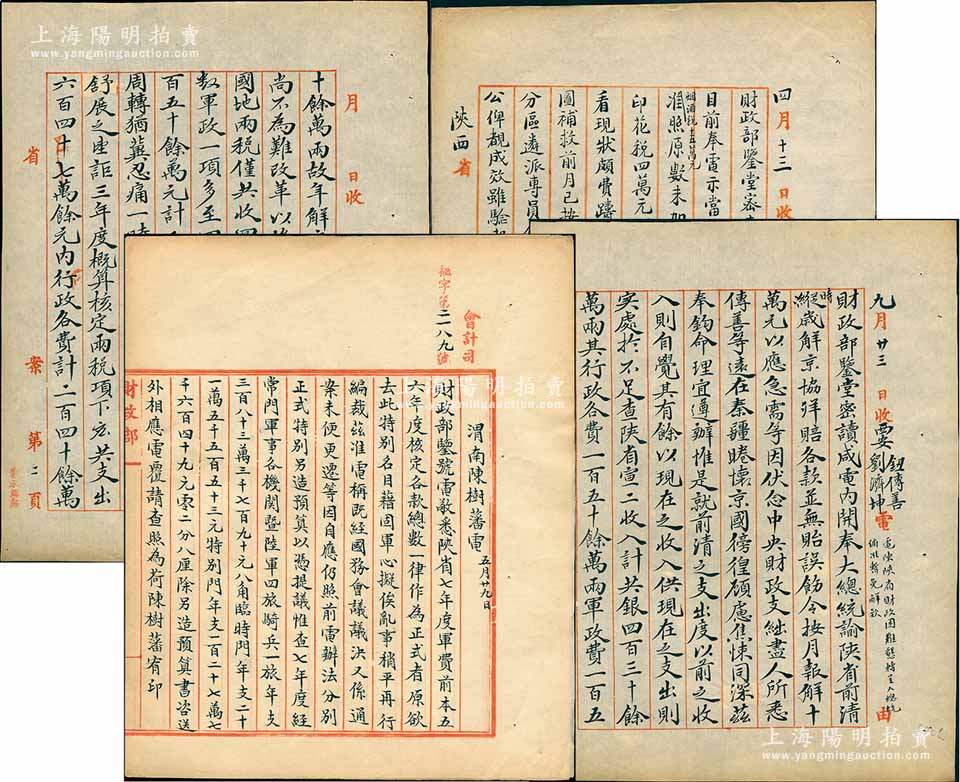 上海陽明拍賣
www.yangmingauction.com
月 日收
十餘萬兩故年解
尚不為難改革以
國地兩税僅共收四
數軍政一項多至四
百五十餘萬元計
周轉猶冀忍痛一時
舒展之
三年度概算核定兩税項下應共支出
六百四十七萬餘元內行政各費計二百四十餘萬
省 案 第二頁
上海陽明拍賣
www.yangmingauction.com
四月十三日收
財政部鑒堂密
日前奉電示當
烟酒税
准照原數未加
印花税四萬元
看現狀頗費躊
圖補救前月已按
分區遴派專員
公俾觀成效雖驗
陝西省
九月廿三日收西安 鈕傳善 劉濟坤 電 由
電陳陝省財政困難
財政部鑒堂密讀咸電內開奉大總統諭陝省前清
時
縱歲解京協洋賠各款並無貽誤飭令按月報解十
萬元以應急需等因伏念中央財政支絀盡人所悉
傳善等遠在秦疆睠懷京國徬徨顧慮焦悚同深茲
奉鈞命理宜遵辦惟是就前清之支出度以前之收
入則自覺其有餘以現在之收入供現在之支出則
實處於不足查陝省宣二收入計共銀四百三十餘
萬兩其行政各費一百五十餘萬兩軍政費一百五
會計司
二八九號
渭南陳樹藩電 五月廿九日
財政部鑒號電敬悉陝省七年度軍費前本五
六年度核定各款總數一律作為正式者原欲
去此特別名目藉固軍心擬俟亂事稍平再行
編裁茲准電稱既經國務會議議決又係通
案未便更遷等因自應仍照前電辦法分別
正式特別另造預算以憑提議惟查七年度經
常門軍事各機關暨陸軍四旅騎兵一旅年支
三百八十三萬三千七百九十元八角臨時門年支二十
一萬五千五百五十三元特別門年支一百二十七萬七
千六百四十九元零二分八厘除另造預算書咨送
外相應電覆請查照為荷陳樹藩宥印
財政部
上海陽明拍賣
www.yangmingauction.com